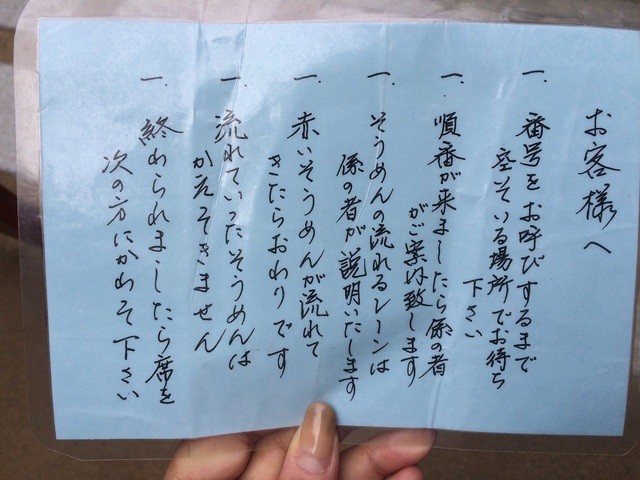 お客様へ
一. 番号をお呼びするまで
空いている場所でお待ち
下さい
一. 順番が来ましたら係の者
がご案内致します
一. そうめんの流れるレーンは
係の者が説明いたします
一. 赤いそうめんが流れて
きたらおわりです
一. 流れていったそうめんは
かえってきません
一. 終わられましたら席を
次の方にかわって下さい